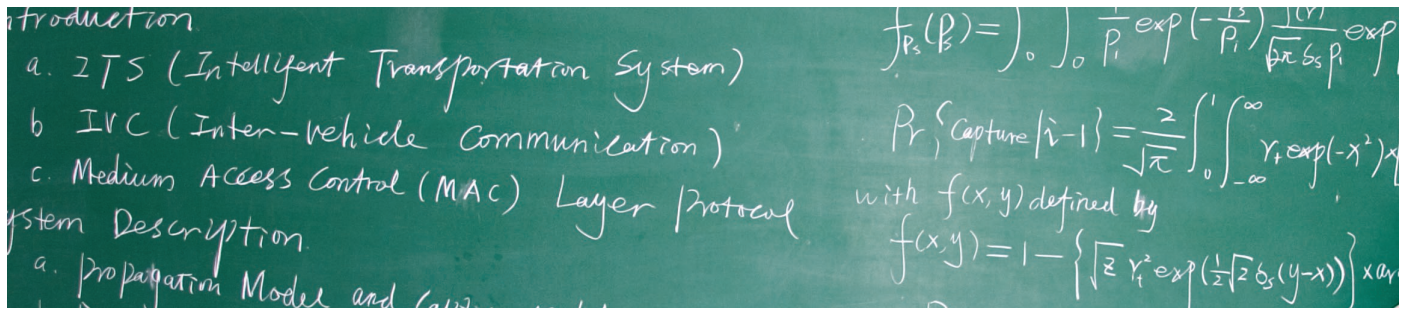 ntroduction
a. ITS (Intelligent Transportation System)
b IVC (Inter-vehicle Communication)
c. Medium Access Control (MAC) Layer Protocol
ystem Description
a. Propagation Model and
f_{Ps}(P_s) = ∫_0 ∫_0 1/P_i exp(- /P_i) f(r)/(√2π 6_s P_i) exp
Pr{Capture|i-1} = 2/√π ∫_0^1 ∫_{-∞}^{∞} r_t exp(-x²) x
with f(x,y) defined by
f(x,y) = 1 - {√2 r_t² exp(½√2 6_s(y-x))} x ar